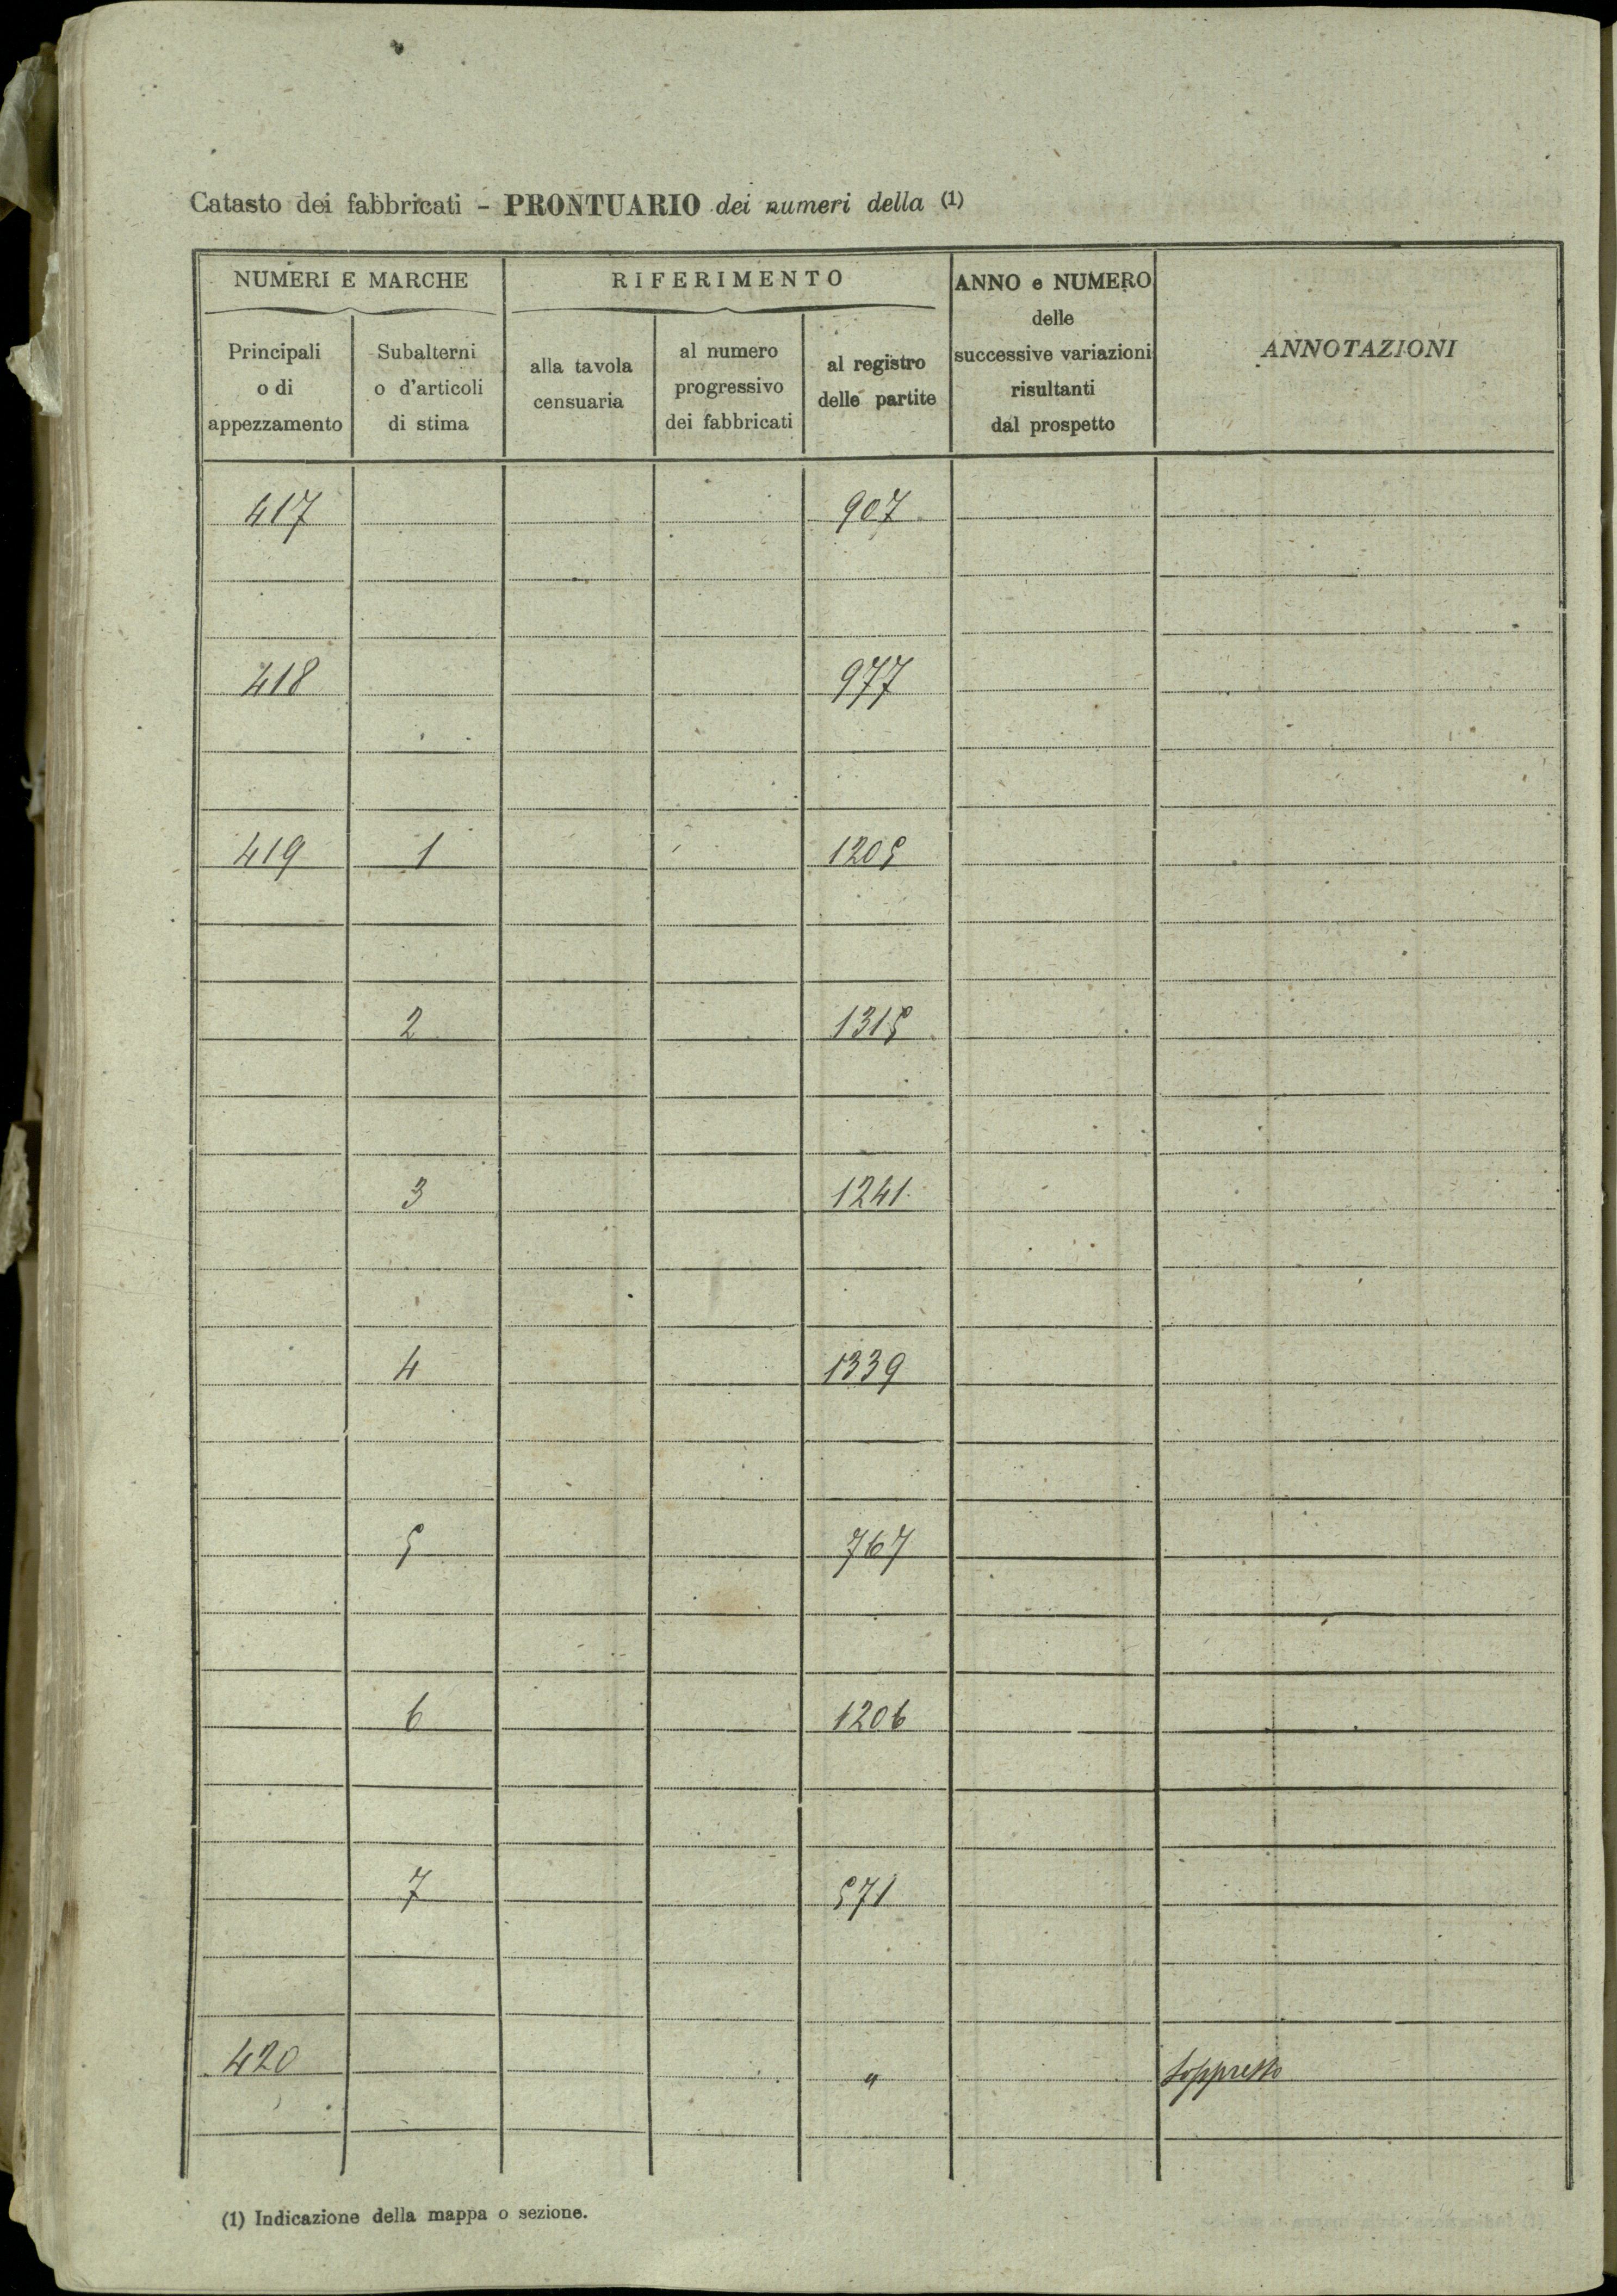 Catasto dei fabbricati - PRONTUARIO dei numeri della (1)
NUMERI E MARCHE RIFERIMENTO ANNO e NUMERO delle successive variazioni risultanti dal prospetto ANNOTAZIONI
Principali o di appezzamento Subalterni o d'articoli di stima alla tavola censuaria al numero progressivo dei fabbricati al registro delle partite
417 907
418 977
419 1 1205
2 1315
3 1241
4 1339
5 767
6 1206
7 571
420 " Soppresso
(1) Indicazione della mappa o sezione.